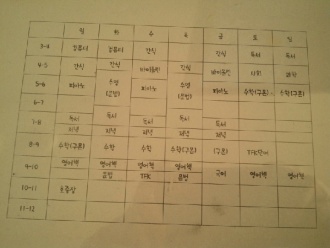 월 화 수 목 금 토 일
3-4 컴퓨터 컴퓨터 간식 간식 독서 독서
4-5 간식 간식 사회 과학
5-6 피아노 수영 피아노 수영 피아노 수학(구몬) 수학(구몬)
6-7
7-8 독서 독서 독서 독서 독서
저녁 저녁 저녁 저녁 저녁
8-9 수학(구몬) 수학 수학 수학(구몬) (구몬)
9-10 영어책 영어책 영어책 영어책 영어책 영어책
문법 문법
10-11
11-12